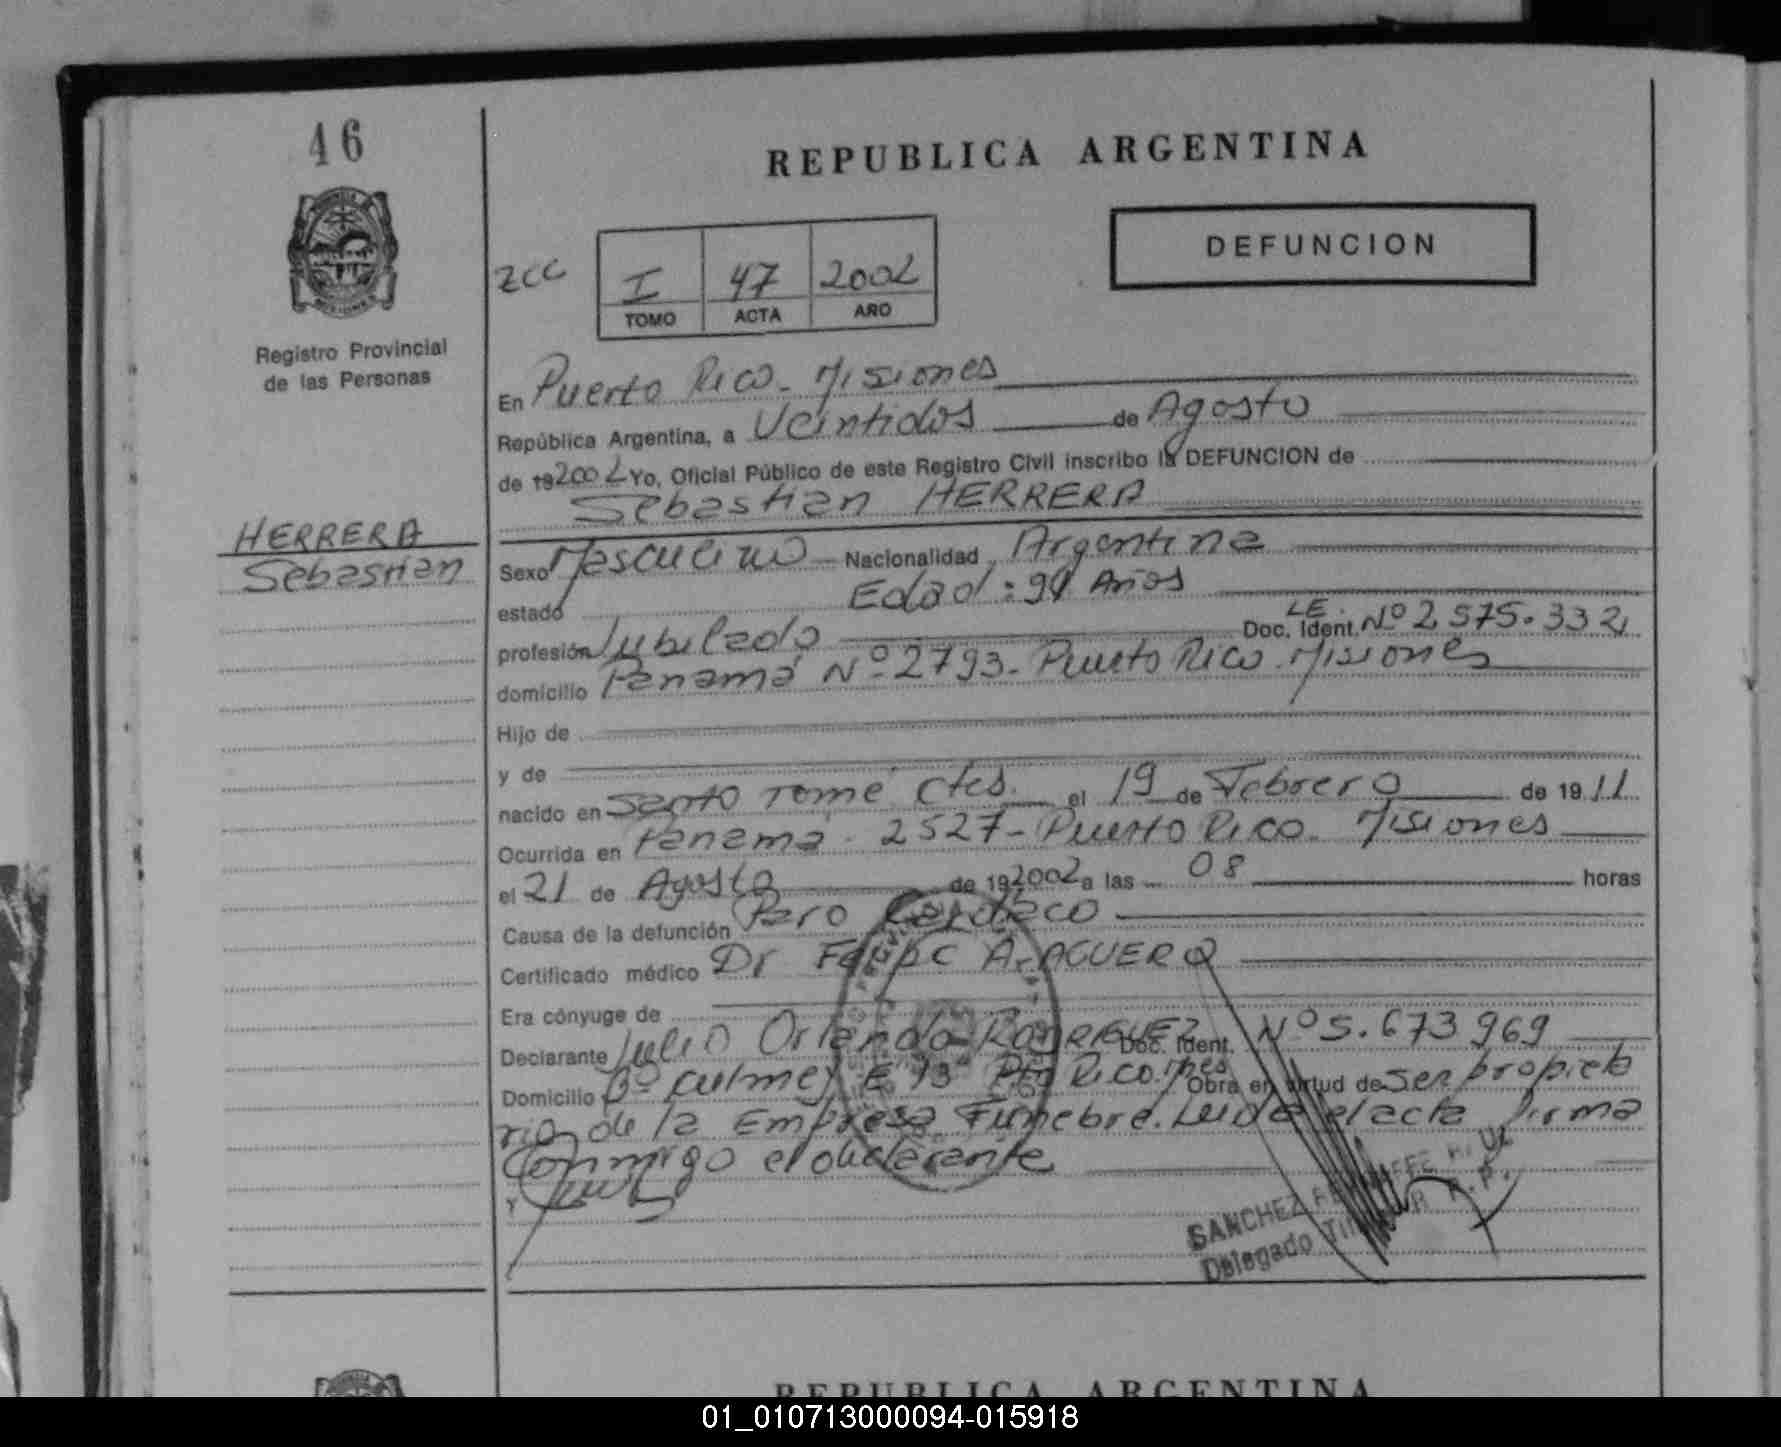 46
REPUBLICA ARGENTINA
DEFUNCION
ZCC
I 47 2002
TOMO ACTA AÑO
Registro Provincial
de las Personas
En Puerto Rico - Misiones
República Argentina, a Veintidos de Agosto
de 192002 Yo, Oficial Público de este Registro Civil inscribo la DEFUNCION de
Sebastian HERRERA
HERRERA
Sebastian
Sexo Masculino Nacionalidad Argentina
estado Edad: 91 Años
profesión Jubilado Doc. Ident. L.E. Nº 2.575.332
domicilio Panamá Nº 2793 - Puerto Rico. Misiones
Hijo de
y de
nacido en Santo Tomé Ctes. el 19 de Febrero de 1911
Ocurrida en Panamá 2527 - Puerto Rico. Misiones
el 21 de Agosto de 192002 a las 08 horas
Causa de la defunción Paro Cardiaco
Certificado médico Dr Felipe A. AGUERO
Era cónyuge de
Declarante Julio Orlando RODRIGUEZ Doc. Ident. Nº 5.673.969
Domicilio Bº Culmey E 13 Pto Rico. Mnes Obra en virtud de ser propieta
rio de la Empresa Funebre. Leida el acta firma
Conmigo el declarante
SANCHEZ
Delegado
REPUBLICA ARGENTINA
01_010713000094-015918